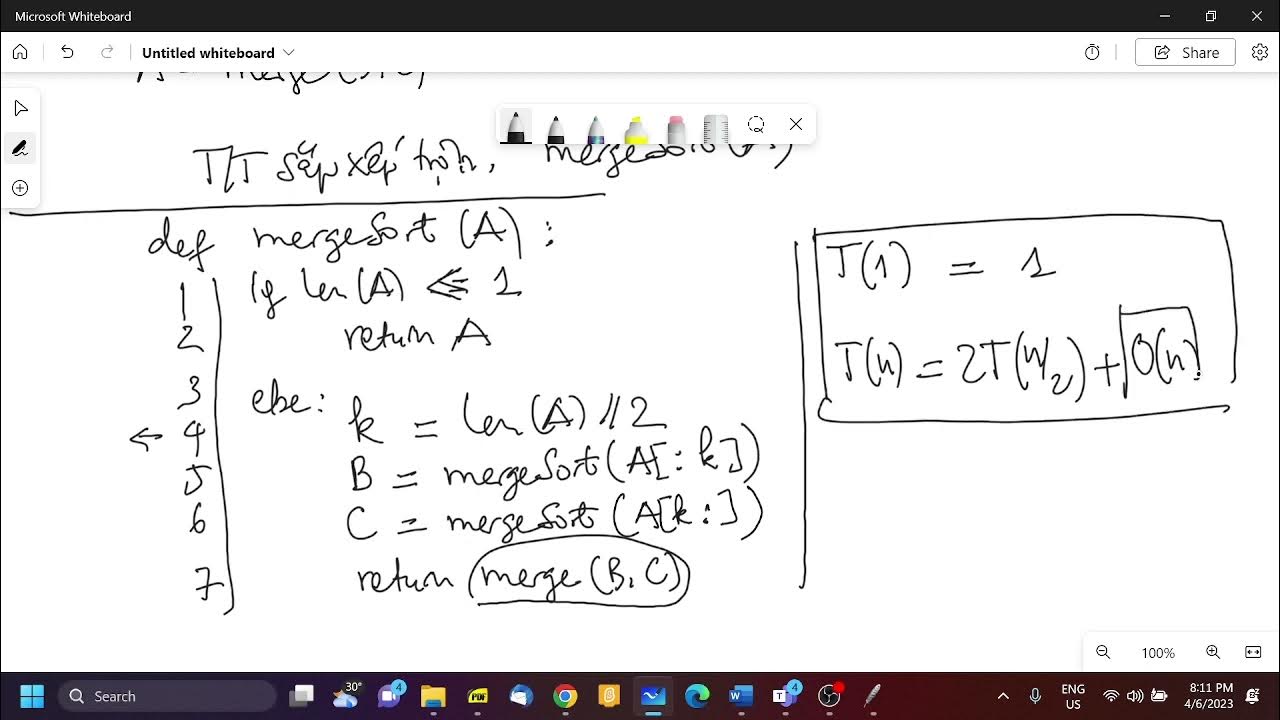 Microsoft Whiteboard
Untitled whiteboard
Share
T/T sắp xếp trộn, mergeSort(A)
def mergeSort (A) :
1 if len(A) <= 1
2 return A
3 else:
4 k = len(A)//2
5 B = mergeSort(A[:k])
6 C = mergeSort(A[k:])
7 return merge(B,C)
T(1) = 1
T(n) = 2T(n/2) + O(n)
100%
Search
30°
4
PDF
4
ENG
US
8:11 PM
4/6/2023